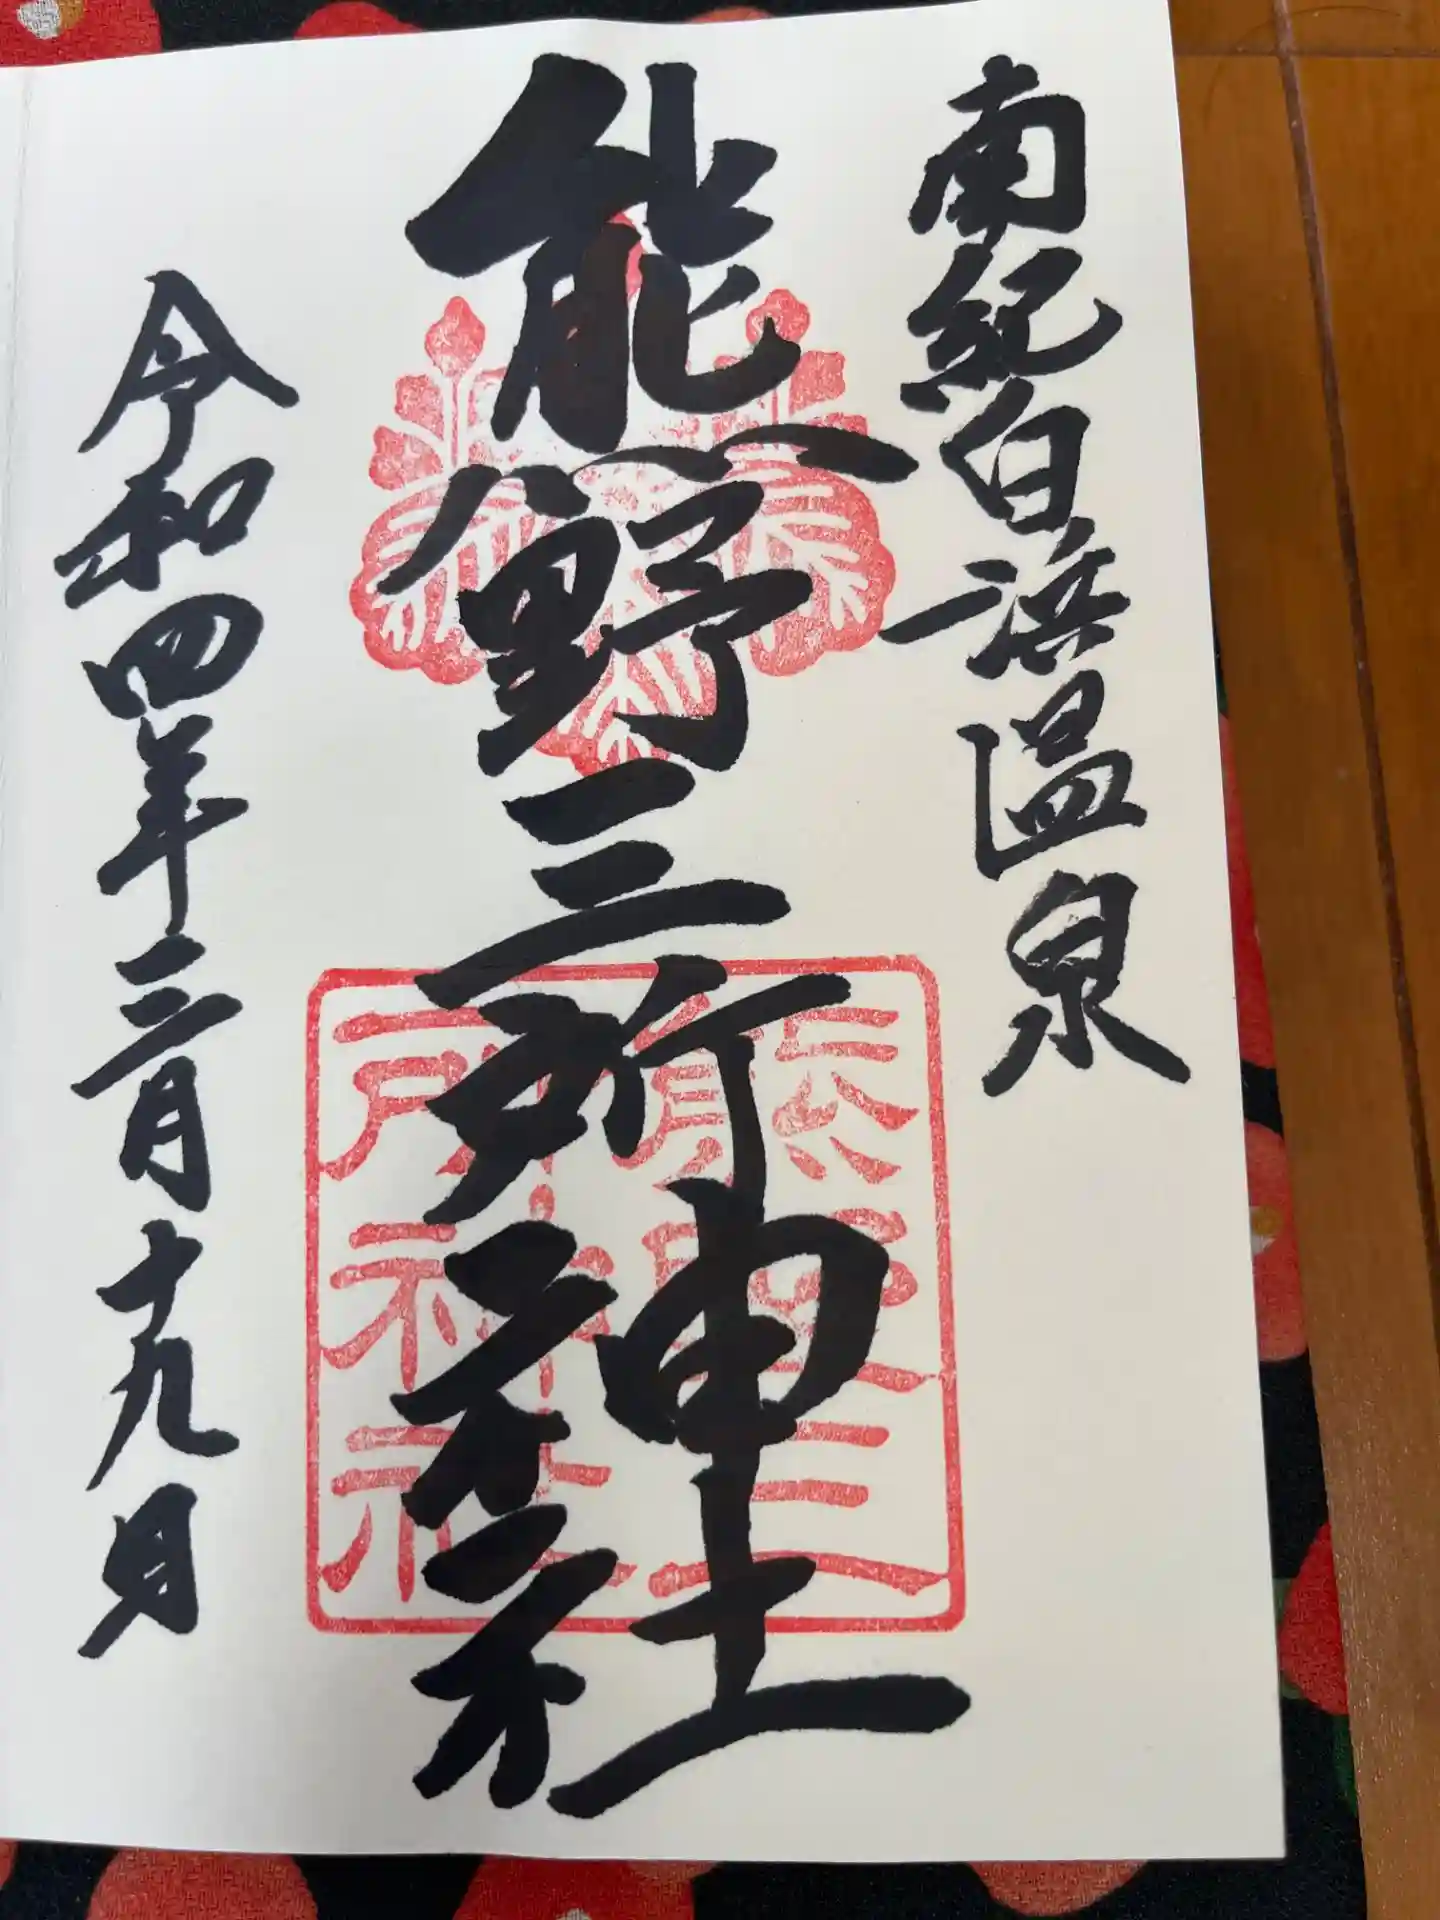 南紀白浜温泉
熊野三所神社
熊野三
所神社
令和四年三月十九日